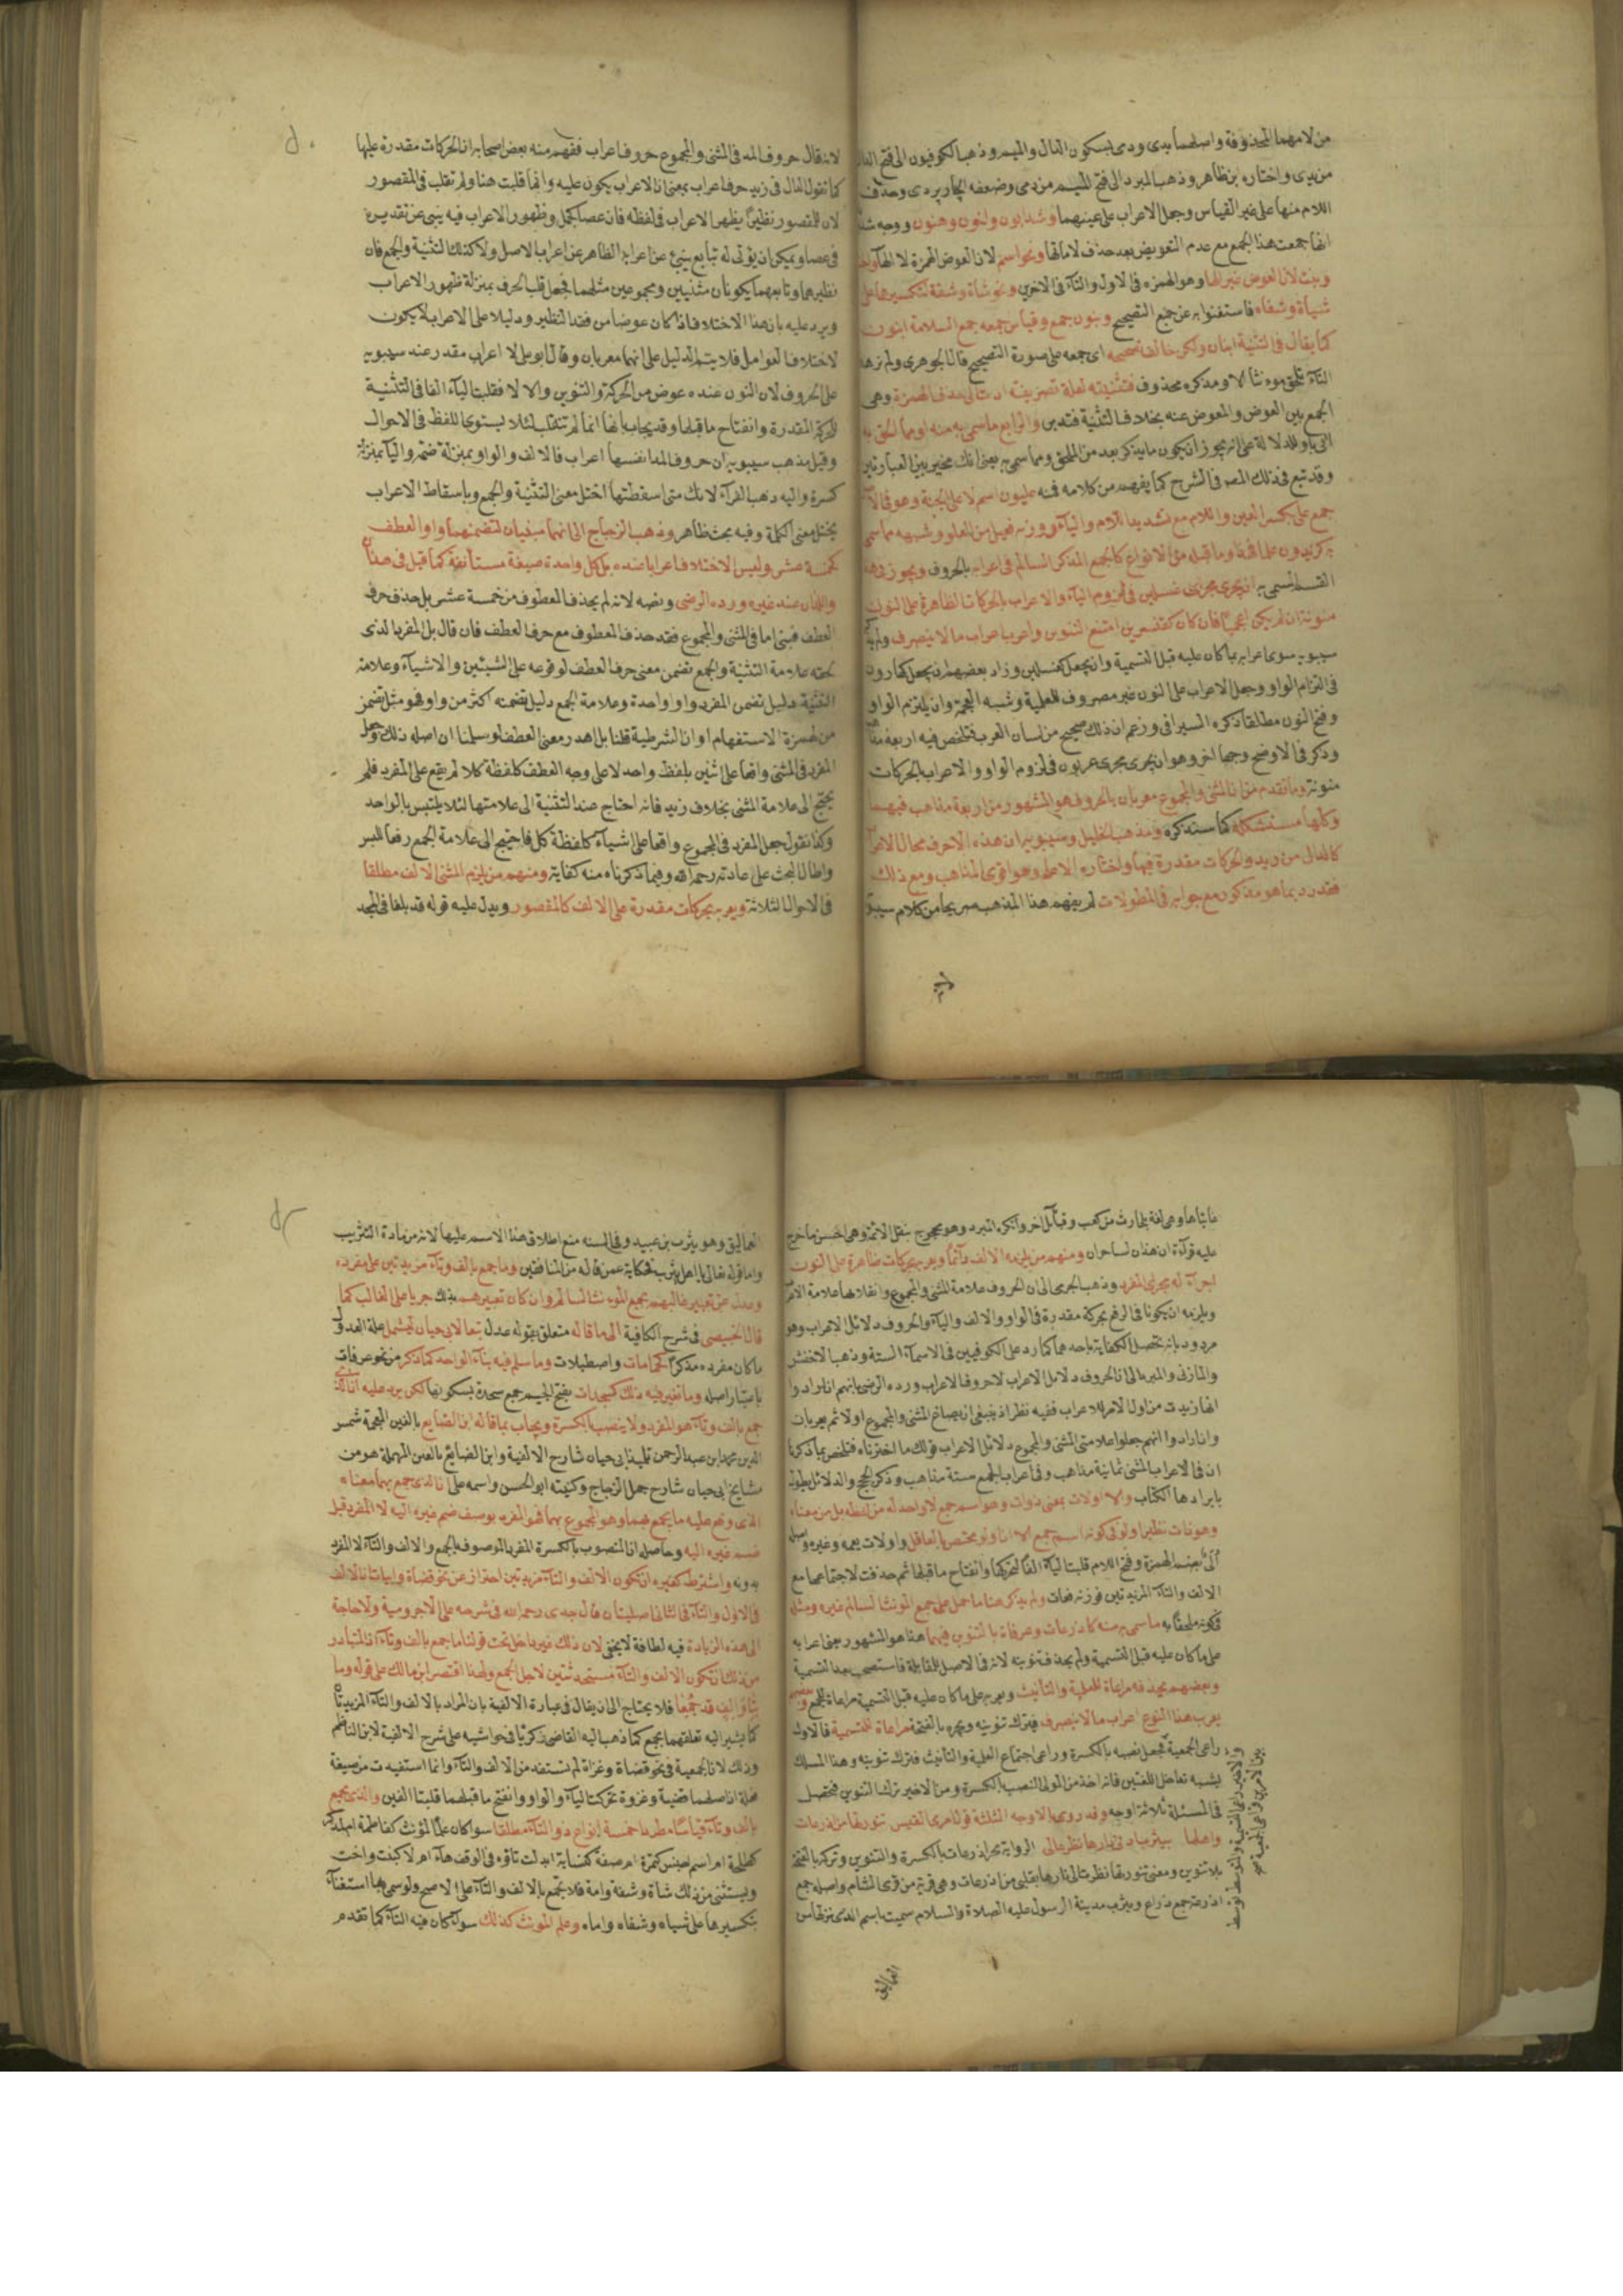 من لامهما المحذوفة واصلهما يدى ودمى بسكون الدال والميم وذهب الكوفيون الى فتح الدال
من يدى واختاره بن طاهر وذهب المبرد الى فتح الميم من دمى وضعفه الجاربردى وحذف
اللام منها على غير القياس وجعل الاعراب على عينهما وشذ ابون واخون وهنون ووجه
انها جمعت هذا الجمع مع عدم التعويض بعد حذف لاماتها ونحو اسم لان العوض الهمزة لا الهاء
وبنت لان العوض غير الها وهو الهمزه فى الاول والتآء فى الاخرى ونحو شاة وشفة لتكسيرهما على
شياة وشفاه فاستغنوا به عن جمع التصحيح وبنون جمع وقياس جمعه جمع السلامة ابنون
كما يقال فى التثنية ابنان ولكن خالف تصحيحه اى جمعه على صورة التصحيح قال الجوهرى
التآء تلحق مؤنثا لا ومذكره محذوف تثنيته لعلة تصريفية ادت الى حذف الهمزة وهى
الجمع بين العوض والمعوض عنه بخلاف التثنية فتدبر والرابع ما سمى به منه او مما الحق به
اتى باو للدلالة على انه يجوز ان يكون ما يذكر بعد من الملحق ومما سمى به بمعنى انك مخير بين العبارتين
وقد تبع فى ذلك المصر فى الشرح كما يفهم من كلامه فمنه عليون اسم لاعلى الجنة وهو فى الاصل
جمع على بكسر العين واللام مع تشديد اللام والياء ووزنه فعيل من العلو وشبهه مما سمى
به كزيدون علما فهذا وما قبله من الانواع كالجمع المذكر السالم فى اعرابه بالحروف ويجوز فى هذا
القسم المسمى به ان يجرى مجرى غسلين فى لزوم اليآء والاعراب بالحركات الظاهرة على النون
منونة ان لم يكن اعجميا فان كان كقنسرين امتنع التنوين واعرب اعراب ما لا ينصرف ولم يذكر
سيبويه سوى اعرابه بما كان عليه قبل التسمية وان يجعل كغسلين وزاد بعضهم ان يجعل كهارون
فى التزام الواو وجعل الاعراب على النون غير مصروف للعلمية وشبه العجمة وان يلتزم الواو
وفتح النون مطلقا ذكره السيرافى وزعم ان ذلك صحيح من لسان العرب فتلخص فيه اربعة
وذكر فى الاوضح وجها اخر وهو ان يجرى مجرى عربون فى لزوم الواو والاعراب بالحركات
منونة وما تقدم من ان المثنى والمجموع معربان بالحروف هو المشهور من اربعة مذاهب فيهما
وكلها مستشكلة كما ستذكره ومذهب الخليل وسيبويه ان هذه الاحرف محال الاعراب
كالدال من زيد والحركات مقدرة فيها واختاره الاعلم وهو اقوى المذاهب ومع ذلك
فقد رد بما هو مذكور مع جوابه فى المطولات لم يفهم هذا المذهب صريحا من كلام سيبويه
لانه قال حروف المد فى المثنى والمجموع حروف اعراب ففهم منه بعض اصحابه ان الحركات مقدرة عليها
كما تقول الدال فى زيد حرف اعراب بمعنى ان الاعراب يكون عليه وانما قلبت هنا ولم تقلب فى المقصور
لان للمقصور نظيرا يظهر الاعراب فى لفظه فان عصا كجمل وظهور الاعراب فيه ينبى عن تقديره
فى عصا ويمكن ان يؤتى له بتابع ينبئ عن اعرابه الظاهر عن اعراب الاصل ولا كذلك التثنية والجمع فان
نظيرهما وتابعهما يكونان مثنيين ومجموعين مثلهما فجعل قلب الحرف بمنزلة ظهور الاعراب
ويرد عليه بان هذا الاختلاف اذا كان عوضا من فقد النظير ودليلا على الاعراب لا يكون
لاختلاف العوامل فلا يتم الدليل على انهما معربان وقال ابو على لا اعراب مقدر عند سيبويه
على الحروف لان النون عنده عوض من الحركة والتنوين والا لا فقلبت اليآء الفا فى التثنية
للحركة المقدرة وانفتاح ما قبلها وقد يجاب بانها انما لم تنقلب لئلا يستوى اللفظ فى الاحوال
وقيل مذهب سيبويه ان حروف المد انفسها اعراب فالالف والواو بمنزلة ضمة واليآ بمنزلة
كسرة واليه ذهب الفرآء لانك متى اسقطتها اختل معنى التثنية والجمع وباسقاط الاعراب
يختل معنى الكلمة وفيه بحث ظاهر وذهب الزجاج الى انهما مبنيان لتضمنهما واو العطف
كخمسة عشر وليس الاختلاف اعرابا عنده بل كل واحدة صيغة مستأنفة كما قيل فى هذان
واللذان عند غيره ورده الرضى ونصه لانه لم يحذف المعطوف من خمسة عشر بل حذف حرف
العطف فبنى اما فى المثنى والمجموع فقد حذف المعطوف مع حرف العطف فان قال بل المفرد الذى
لحقته علامة التثنية والجمع تضمن معنى حرف العطف لوقوعه على الشيئين والاشيآء وعلامة
التثنية دليل تضمن المفرد واو واحدة وعلامة الجمع دليل تضمنه اكثر من واو فهو مثل تضمن
من لهمزة الاستفهام او ان الشرطية قلنا بل اهدر معنى العطف لو سلمنا ان اصله ذلك وجعل
المفرد فى المثنى واقعا على اثنين بلفظ واحد لا على وجه العطف كلفظة كلا لم يقع على المفرد فلم
يحتج الى علامة المثنى بخلاف زيد فانه احتاج عند التثنية الى علامتها لئلا يلتبس بالواحد
وكذا نقول جعل المفرد فى المجموع واقعا على اشيآء كلفظة كل فاحتيج الى علامة الجمع رفعا للبس
واطال البحث على عادته رحمه الله وفيما ذكرناه منه كفاية ومنهم من يلزم المثنى الالف مطلقا
فى الاحوال الثلاثة ويعربه بحركات مقدرة على الالف كالمقصور ويدل عليه قوله قد بلغا فى المجد
غايتاها وهى لغة بلحارث بن كعب وقبآئل اخر وانكره المبرد وهو محجوج بنقل الائمة وهى احسن ما خرج
عليه قرآءة ان هذان لساحران ومنهم من يلزمه الالف دآئما ويعربه بحركات ظاهرة على النون
اجرآء له مجرى المفرد وذهب الجرمى الى ان الحروف علامة المثنى والمجموع وانقلابها علامة الاعراب
ويلزمه ان يكونا فى الرفع بحركة مقدرة فى الواو والالف واليآء والحروف دلائل الاعراب وهو
مردود بانه تحصل الكفاية باحدهما كما رد على الكوفيين فى الاسمآء الستة وذهب الاخفش
والمازنى والمبرد الى ان الحروف دلائل الاعراب لا حروف الاعراب ورده الرضى بانهم ان ارادوا
انها زيدت من اول الامر للاعراب ففيه نظر اذ ينبغى ان يصاغ المثنى والمجموع اولا ثم يعربان
وان ارادوا انهم جعلوا علامتى المثنى والمجموع دلائل الاعراب فذلك ما اخترناه فتلخص بما ذكرنا
ان فى الاعراب المثنى ثمانية مذاهب وفى اعراب الجمع ستة مذاهب وذكر الحجج والدلائل يطول
بايرادها الكتاب والا اولات بمعنى ذوات وهو اسم جمع لا واحد له من لفظه بل من معناه
وهو ذات نظير اولو فى كونه اسم جمع الا ان اولو مختص بالعاقل واولات يعمه وغيره واصله
ألى بضم الهمزة وفتح اللام قلبت اليآء الفا لتحركها وانفتاح ما قبلها ثم حذفت لاجتماعها مع
الالف والتآء المزيدتين فوزنه فعات ولم يذكر هنا ما حمل على جمع المونث السالم غيره ومثله
فى كونه ملحقا به ما سمى به منه كاذرعات وعرفات بالتنوين فيهما هذا هو المشهور فى اعرابه
على ما كان عليه قبل التسمية ولم يحذف تنوينه لانه فى الاصل للمقابلة فاستصحب بعد التسمية
وبعضهم يحذفه مراعاة للعلمية والتأنيث ويعربه على ما كان عليه قبل التسمية مراعاة للجمع وبعضهم
يعرب هذا النوع اعراب ما لا ينصرف فيترك تنوينه ويجره بالفتحة مراعاة للتسمية فالاول
راعى الجمعية فجعل نصبه بالكسرة وراعى اجتماع العلمية والتأنيث فترك تنوينه وهذا المسلك
يشبه تداخل اللغتين فانه اخذ من الاولى النصب بالكسرة ومن الاخير ترك التنوين فتحصل
فى المسئلة ثلاثة اوجه وقد روى بالاوجه الثلثة قول امرئ القيس تنورتها من اذرعات
واهلها بيثرب ادنى دارها نظر عالى الرواية بجر اذرعات بالكسرة والتنوين وتركه بالفتحة
بلا تنوين ومعنى تنورتها نظرت الى نارها بقلبى من اذرعات وهى قرية من قرى الشام واصله جمع
اذرعة جمع ذراع ويثرب مدينة الرسول عليه الصلاة والسلام سميت باسم الذى نزلها من
العماليق
العماليق وهو يثرب بن عبيد وفى السنة منع اطلاق هذا الاسم عليها لانه من مادة التثريب
واما قوله تعالى يا اهل يثرب فحكاية عمن قاله من المنافقين وما جمع بالف وتآء مزيدتين على مفرده
وعدل عن تعبير غالبهم بجمع المونث السالم وان كان تعبيرهم بذلك جريا على الغالب كما
قال الخبيصى فى شرح الكافية الى ما قاله متعلق بقوله عدل تبعا لابى حيان ليشمل علة العدول
ما كان مفرده مذكرا كحمامات واصطبلات وما سلم فيه بنآء الواحد كما ذكر من نحو عرفات
باعتبار اصله وما تغير فيه ذلك كسجدات بفتح الجيم جمع سجدة بسكونها لكن يرد عليه ان الذى
جمع بالف وتآء هو المفرد ولا ينصب بالكسرة ويجاب بما قاله ابن الصايغ بالغين المعجمة شمس
الدين محمد ابن عبد الرحمن تلميذ ابى حيان شارح الالفية وابن الضائع بالعين المهملة هو من
مشايخ ابى حيان شارح جمل الزجاج وكنيته ابو الحسن واسمه على ان الذى جمع بهما معناه
الذى وقع عليه ما يجمع بهما وهو المجموع بهما فهو المفرد بوصف ضم غيره اليه لا المفرد قبل
ضم غيره اليه وحاصله ان المنصوب بالكسرة المفرد الموصوف بالجمع والالف والتآء لا المفرد
بدونه واشترط كغيره ان تكون الالف والتآء مزيدتين احتراز عن نحو قضاة وابيات فان الالف
فى الاول والتآء فى الثانى اصليتان قال جدى رحمه الله فى شرحه على الاجرومية ولا حاجة
الى هذه الزيادة فيه لطافة لا يخفى لان ذلك غير داخل تحت قولنا ما جمع بالف وتآء اذ المتبادر
من ذلك ان تكون الالف والتآء مستحدثتين لاجل الجمع ولهذا اقتصر ابن مالك على قوله وما
بتا والف قد جمعا فلا يحتاج الى ان يقال فى عبارة الالفية بان المراد بالالف والتآء المزيدتان
كما يشير اليه تعلقهما بجمع كما ذهب اليه القاضى زكريا فى حواشيه على شرح الالفية لابن الناظم
وذلك لان الجمعية فى نحو قضاة وغزاة لم تستفد من الالف والتآء وانما استفيدت من صيغة
فعلة اذ اصلهما قضية وغزوة تحركت اليآء والواو وانفتح ما قبلهما قلبتا الفين والذى يجمع
بالف وتآء قياسا مطردا خمسة انواع ذو التآء مطلقا سوا كان علما لمؤنث كفاطمة ام لمذكر
كطلحة ام اسم لجنس كتمرة ام صفة كنسابة ابدلت تاؤه فى الوقف هآء ام لا كبنت واخت
ويستثنى من ذلك شاة وشفة وامة فلا تجمع بالالف والتآء على الاصح ولو سمى بها استغنآء
بتكسيرها على شياه وشفاه واماء وعلم المونث كذلك سوآء كان فيه التآء كما تقدم